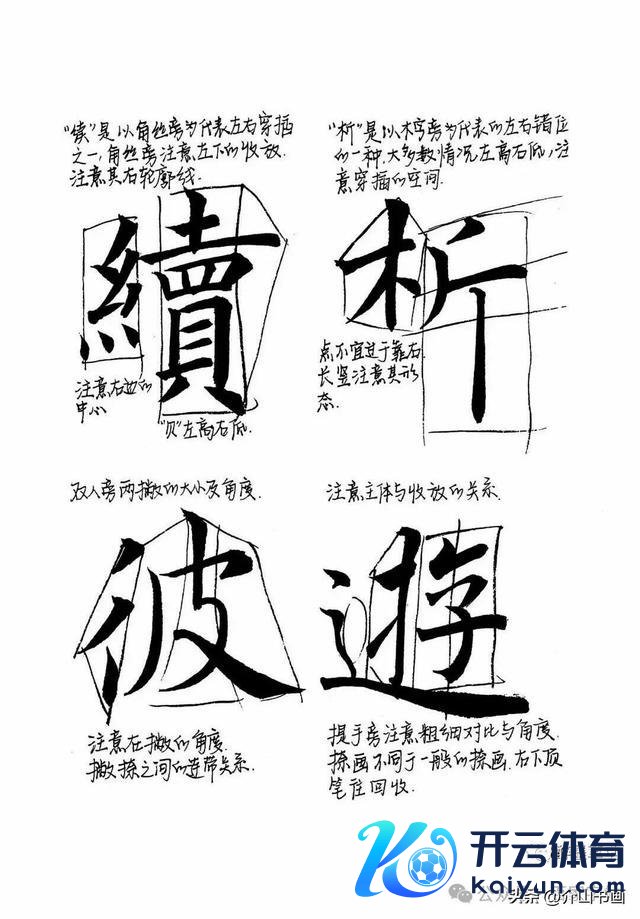 "续"是以角丝旁为代表左右穿插
之一,角丝旁注意左下的收放.
注意其右轮廓线.
續
注意右边的
中心
"贝"左高右低.
"析"是以木字旁为代表的左右错位
的一种.大多数情况左高右低,注
意穿插的空间.
析
点不宜过于靠右
长竖注意其形
态.
双人旁两撇的大小及角度.
彼
注意左撇的角度.
撇捺之间的连带关系.
注意主体与收放的关系.
遊
提手旁注意粗细对比与角度.
捺画不同于一般的捺画.右下顶
笔往回收.
开云体育
kaiyun.com
头条@介山书画